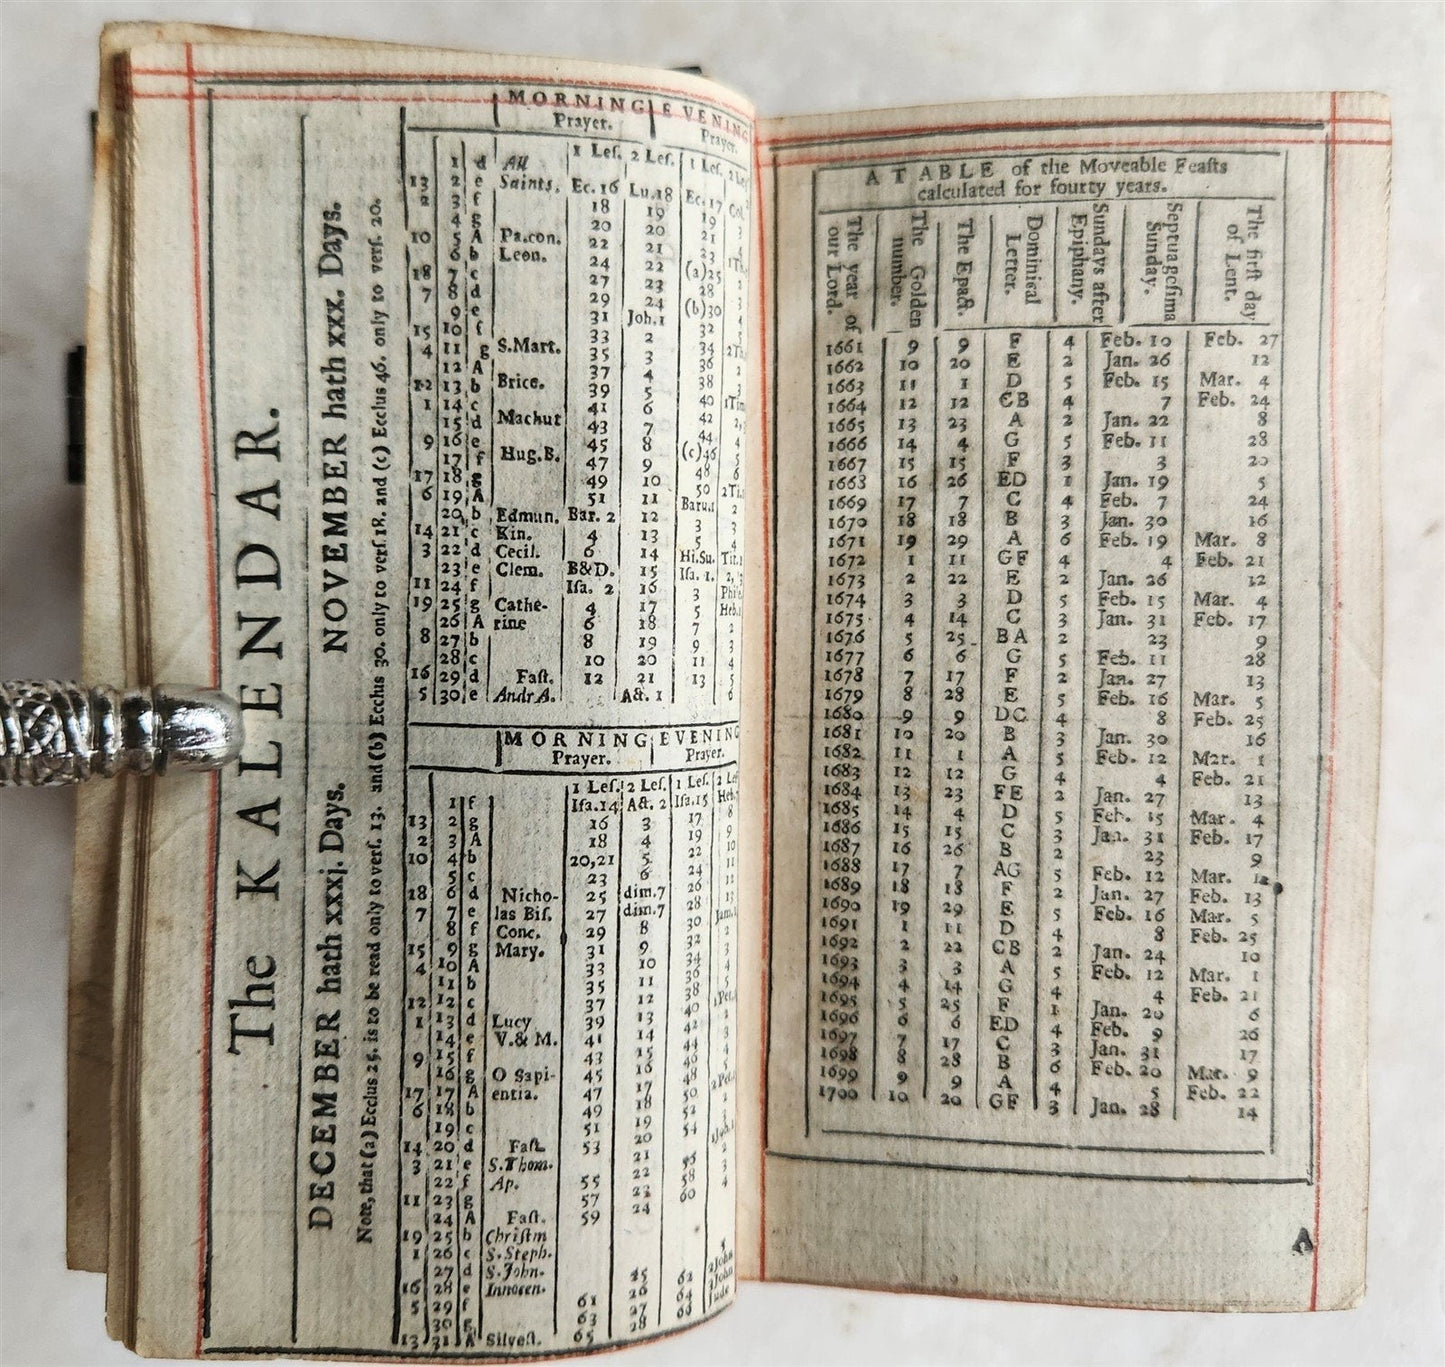 The KALENDAR.
NOVEMBER hath xxx. Days.
DECEMBER hath xxxj. Days.
Note, that (a) Ecclus 25. is to be read only to verſ. 13. and (b) Ecclus 30. only to verſ. 18. and (c) Ecclus 46. only to verſ. 20.
MORNING EVENING
Prayer. Prayer.
1 Leſ. 2 Leſ. 1 Leſ.
1 d All
13 2 e Saints. Ec. 16 Lu. 18 Ec. 17
2 3 f 18 19 19
4 g 20 20 21
10 5 A Papcon. 22 21 23
6 b Leon. 24 22 (a)25
18 7 c 27 23 28
7 8 d 29 24 (b)30
9 e 31 Joh. 1 32
15 10 f 33 2 34
4 11 g S.Mart. 35 3 36
12 A 37 4 38
12 13 b Brice. 39 5 40
1 14 c 41 6 42
15 d Machut 43 7 44
9 16 e 45 8 (c)46
17 f Hug.B. 47 9 48
17 18 g 49 10 50
6 19 A 51 11 Baru.1
20 b Edmun. Bar. 2 12 3
14 21 c Kin. 4 13 5
3 22 d Cecil. 6 14 Hi.Su.
23 e Clem. B&D. 15 Iſa. 1.
11 24 f Iſa. 2 16 3
19 25 g Cathe- 4 17 5
26 A rine 6 18 7
8 27 b 8 19 9
28 c 10 20 11
16 29 d Faſt. 12 21 13
5 30 e AndrA. Act. 1
MORNING EVENING
Prayer. Prayer.
1 Leſ. 2 Leſ. 1 Leſ. 2 Leſ
1 f Iſa.14 Act. 2 Iſa.15
13 2 g 16 3 17
2 3 A 18 4 19
10 4 b 20,21 5 22
5 c 23 6 24
18 6 d Nicho- 25 dim.7 26
7 7 e las Biſ. 27 dim.7 28
8 f Conc. 29 8 30
15 9 g Mary. 31 9 32
4 10 A 33 10 34
11 b 35 11 36
12 12 c 37 12 38
1 13 d Lucy 39 13 40
14 e V.& M. 41 14 42
9 15 f 43 15 44
16 g O Sapi- 45 16 46
17 17 A entia. 47 17 48
6 18 b 49 18 50
19 c 51 19 52
14 20 d Faſt. 53 20 54
3 21 e S.Thom. 21
22 f Ap. 55 22 56
11 23 g 57 23 58
24 A Faſt. 59 24 60
19 25 b Chriſtm
1 26 c S.Steph.
27 d S.John.
16 28 e Innocen. 25 62
5 29 f 61 26 64
30 g 63 27 66
13 31 A Silveſt. 65 28
A TABLE of the Moveable Feaſts
calculated for fourty years.
The year of our Lord. The Golden number. The Epact. Dominical Letter. Sundays after Epiphany. Septuageſima Sunday. The firſt day of Lent.
1661 9 9 F 4 Feb. 10 Feb. 27
1662 10 20 E 2 Jan. 26 12
1663 11 1 D 5 Feb. 15 Mar. 4
1664 12 12 CB 4 7 Feb. 24
1665 13 23 A 2 Jan. 22 8
1666 14 4 G 5 Feb. 11 28
1667 15 15 F 3 3 20
1668 16 26 ED 1 Jan. 19 5
1669 17 7 C 4 Feb. 7 24
1670 18 18 B 3 Jan. 30 16
1671 19 29 A 6 Feb. 19 Mar. 8
1672 1 11 GF 4 4 Feb. 21
1673 2 22 E 2 Jan. 26 12
1674 3 3 D 5 Feb. 15 Mar. 4
1675 4 14 C 3 Jan. 31 Feb. 17
1676 5 25 BA 2 23 9
1677 6 6 G 5 Feb. 11 28
1678 7 17 F 2 Jan. 27 13
1679 8 28 E 5 Feb. 16 Mar. 5
1680 9 9 DC 4 8 Feb. 25
1681 10 20 B 3 Jan. 30 16
1682 11 1 A 5 Feb. 12 Mar. 1
1683 12 12 G 4 4 Feb. 21
1684 13 23 FE 2 Jan. 27 13
1685 14 4 D 5 Feb. 15 Mar. 4
1686 15 15 C 3 Jan. 31 Feb. 17
1687 16 26 B 2 23 9
1688 17 7 AG 5 Feb. 12 Mar.
1689 18 18 F 2 Jan. 27 Feb. 13
1690 19 29 E 5 Feb. 16 Mar. 5
1691 1 11 D 4 8 Feb. 25
1692 2 22 CB 2 Jan. 24 10
1693 3 3 A 5 Feb. 12 Mar. 1
1694 4 14 G 4 4 Feb. 21
1695 5 25 F 1 Jan. 20 6
1696 6 6 ED 4 Feb. 9 26
1697 7 17 C 3 Jan. 31 17
1698 8 28 B 6 Feb. 20 Mar. 9
1699 9 9 A 4 5 Feb. 22
1700 10 20 GF 3 Jan. 28 14
A